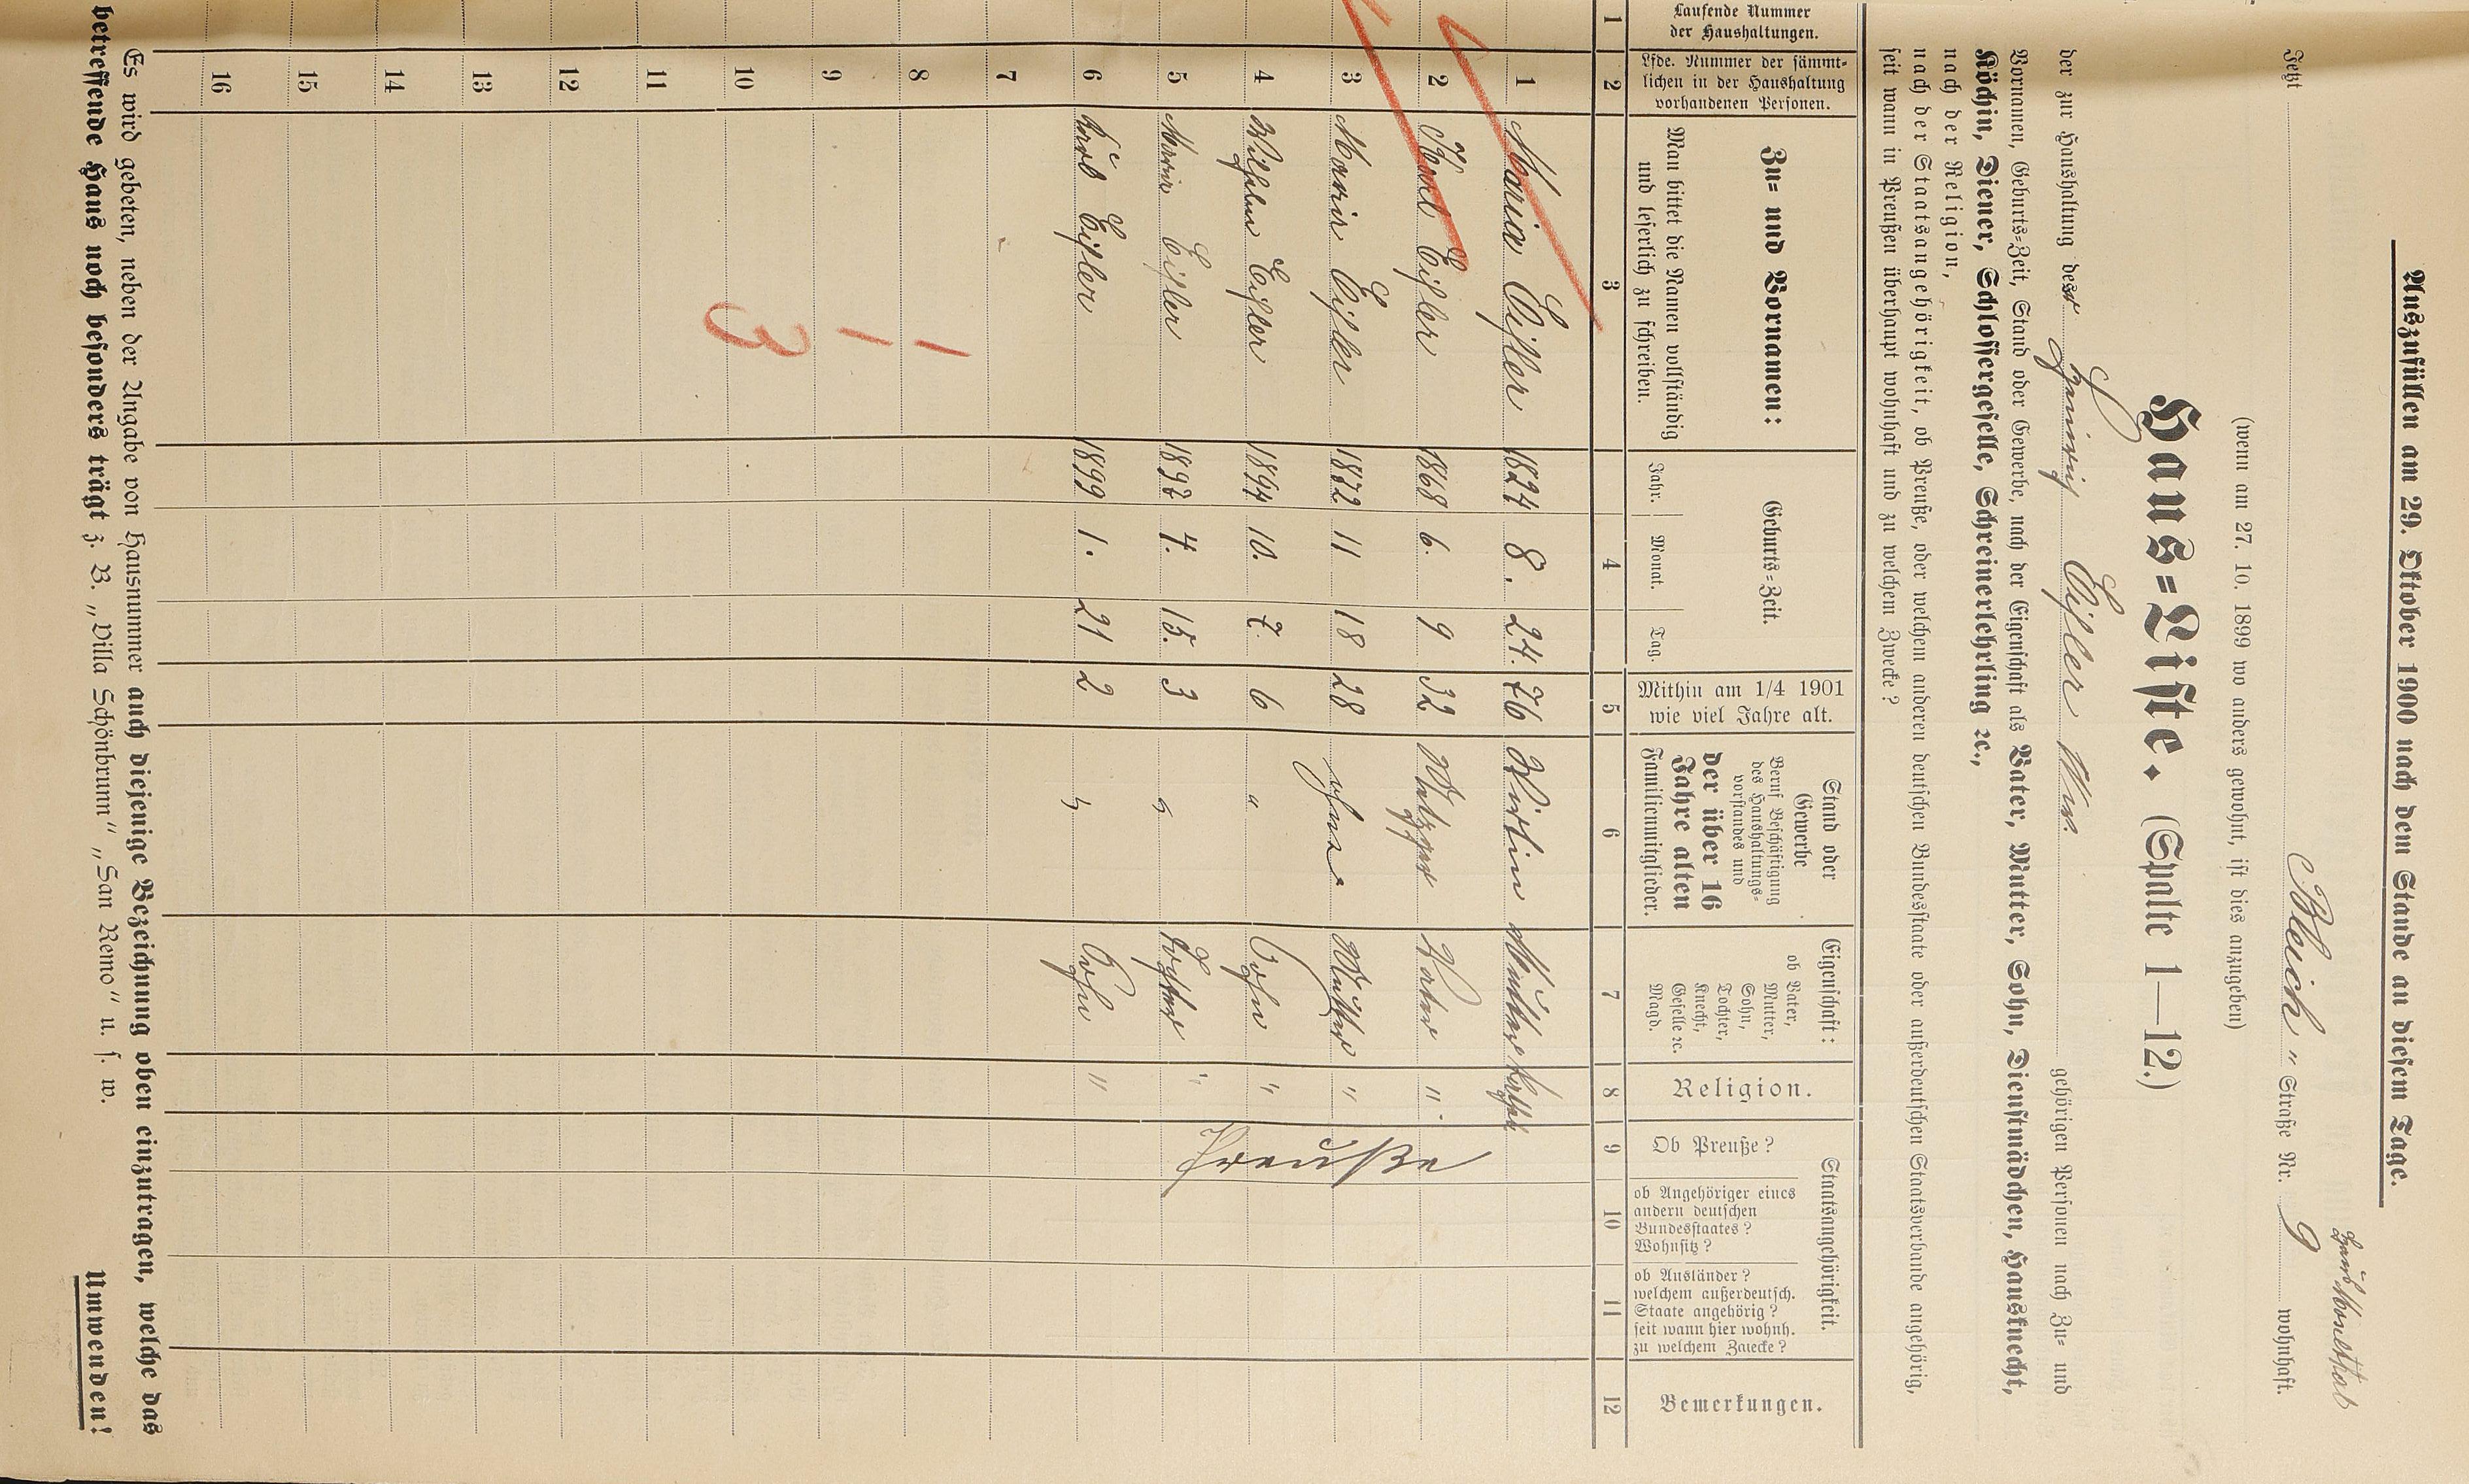 Auszufüllen am 29. Oktober 1900 nach dem Stande an diesem Tage.
Jetzt Bleich " Straße Nr. 9 wohnhaft.
(wenn am 27. 10. 1899 wo anders gewohnt, ist dies anzugeben)
Haus=Liste. (Spalte 1—12.)
der zur Haushaltung des Eisler Ww. gehörigen Personen nach Zu= und
Vornamen, Geburts=Zeit, Stand oder Gewerbe, nach der Eigenschaft als Vater, Mutter, Sohn, Dienstmädchen, Hausknecht,
Köchin, Diener, Schlossergeselle, Schreinerlehrling ꝛc.,
nach der Religion,
nach der Staatsangehörigkeit, ob Preuße, oder welchem anderen deutschen Bundesstaate oder außerdeutschen Staatsverbande angehörig,
seit wann in Preußen überhaupt wohnhaft und zu welchem Zwecke?
Laufende Nummer
der Haushaltungen.
Lfde. Nummer der sämmt-
lichen in der Haushaltung
vorhandenen Personen.
Zu= und Vornamen:
Man bittet die Namen vollständig
und leserlich zu schreiben.
Geburts=Zeit.
Jahr. Monat. Tag.
Mithin am 1/4 1901
wie viel Jahre alt.
Stand oder
Gewerbe
Beruf Beschäftigung
des Haushaltungs-
vorstandes und
der über 16
Jahre alten
Familienmitglieder.
Eigenschaft:
ob Vater,
Mutter,
Sohn,
Tochter,
Knecht,
Geselle ꝛc.
Magd.
Religion.
Staatsangehörigkeit.
Ob Preuße?
ob Angehöriger eines
andern deutschen
Bundesstaates?
Wohnsitz?
ob Ausländer?
welchem außerdeutsch.
Staate angehörig?
seit wann hier wohnh.
zu welchem Zwecke?
Bemerkungen.
1 2 3 4 5 6 7 8 9 10 11 12
1 Maria Eisler 1824 8. 24. 76 Wirtin Mutter kathol.
2 Karl Eisler 1868 6. 9. 32 Metzger Vater "
3 Maria Eisler 1872 11 18 28 ohne Mutter "
4 Wilhelm Eisler 1894 10. 7. 6 " Sohn "
5 Maria Eisler 1897 4. 15. 3 " Tochter "
6 Karl Eisler 1899 1. 21 2 " Sohn "
Preuße
7
8
9
10
11
12
13
14
15
16
3
Es wird gebeten, neben der Angabe von Hausnummer auch diejenige Bezeichnung oben einzutragen, welche das
betreffende Haus noch besonders trägt z. B. „Villa Schönbrunn" „San Remo" u. s. w.
Umwenden!